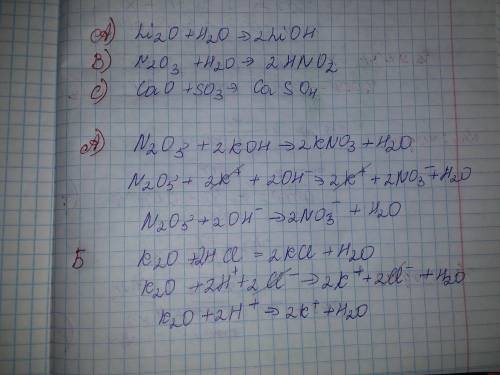 A) Li₂O + H₂O → 2LiOH
B) N₂O₃ + H₂O → 2HNO₂
C) CaO + SO₃ → CaSO₄
A) N₂O₃ + 2KOH → 2KNO₃ + H₂O
N₂O₃ + 2K⁺ + 2OH⁻ → 2K⁺ + 2NO₃⁻ + H₂O
N₂O₃ + 2OH⁻ → 2NO₃⁻ + H₂O
Б K₂O + 2HCl = 2KCl + H₂O
K₂O + 2H⁺ + 2Cl⁻ → 2K⁺ + 2Cl⁻ + H₂O
K₂O + 2H⁺ → 2K⁺ + H₂O